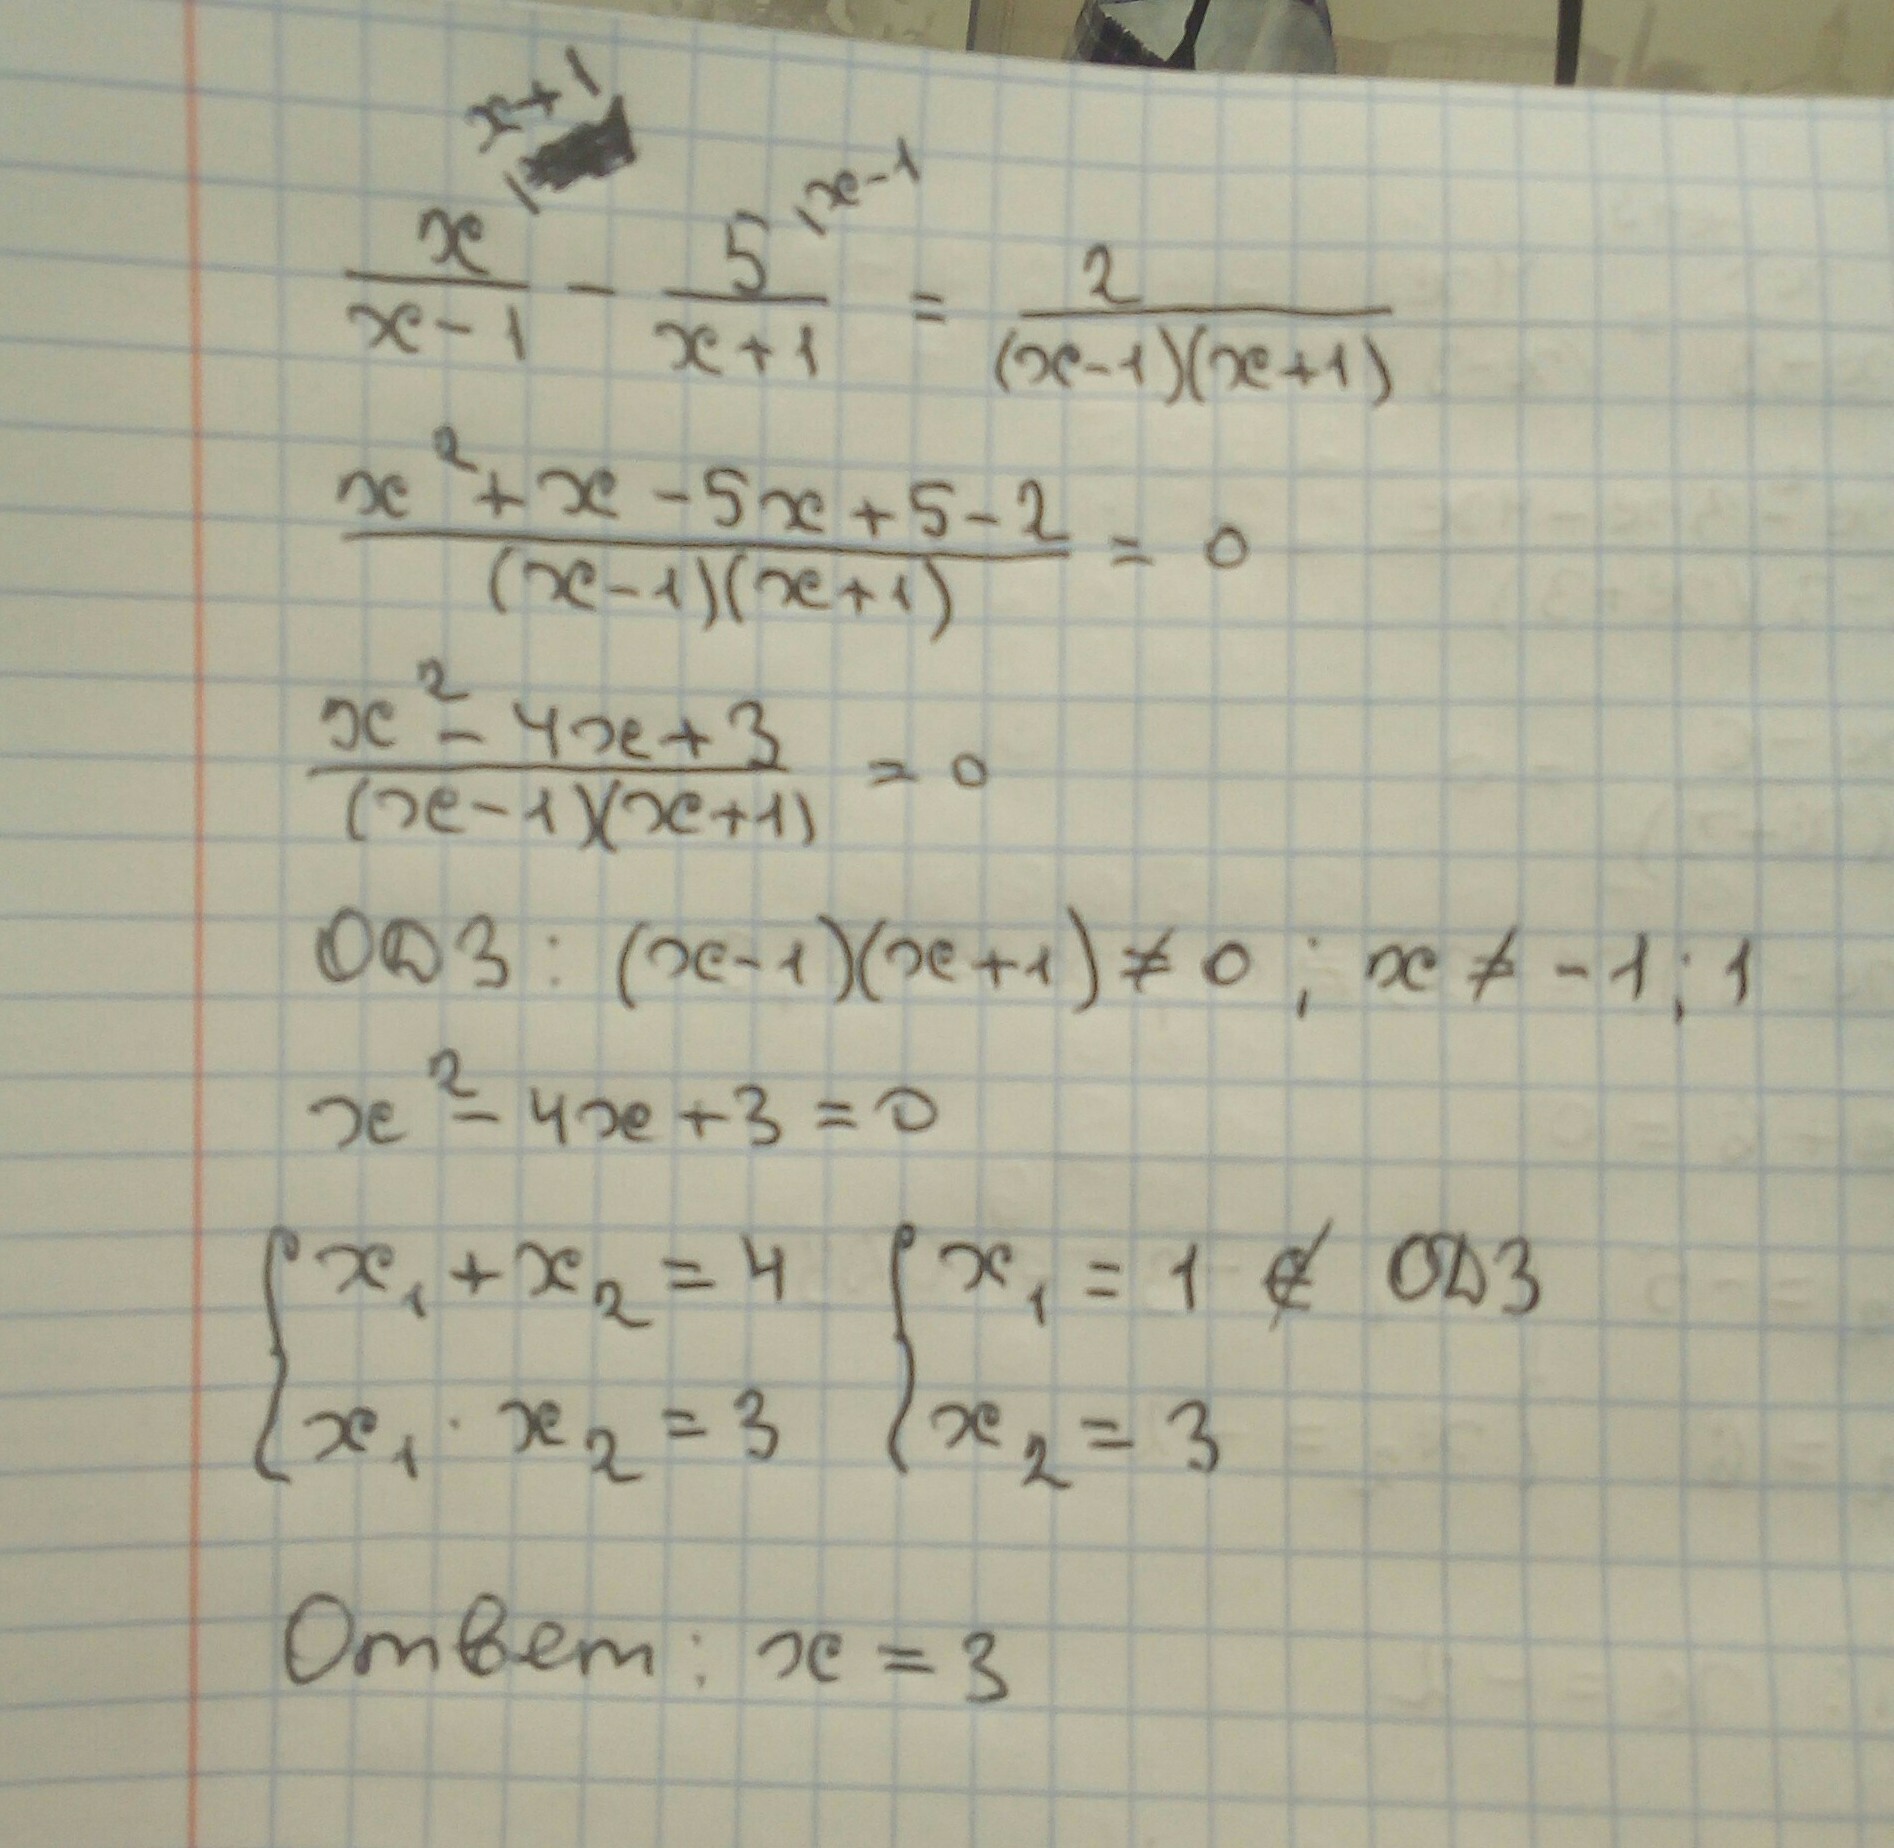 x/(x-1) ^(x+1) - 5/(x+1) ^(x-1) = 2/((x-1)(x+1))
(x² + x - 5x + 5 - 2)/((x-1)(x+1)) = 0
(x² - 4x + 3)/((x-1)(x+1)) = 0
ОДЗ : (x-1)(x+1) ≠ 0 ; x ≠ -1 ; 1
x² - 4x + 3 = 0
{ x₁ + x₂ = 4 { x₁ = 1 ∉ ОДЗ
{ x₁ · x₂ = 3 { x₂ = 3
Ответ : x = 3